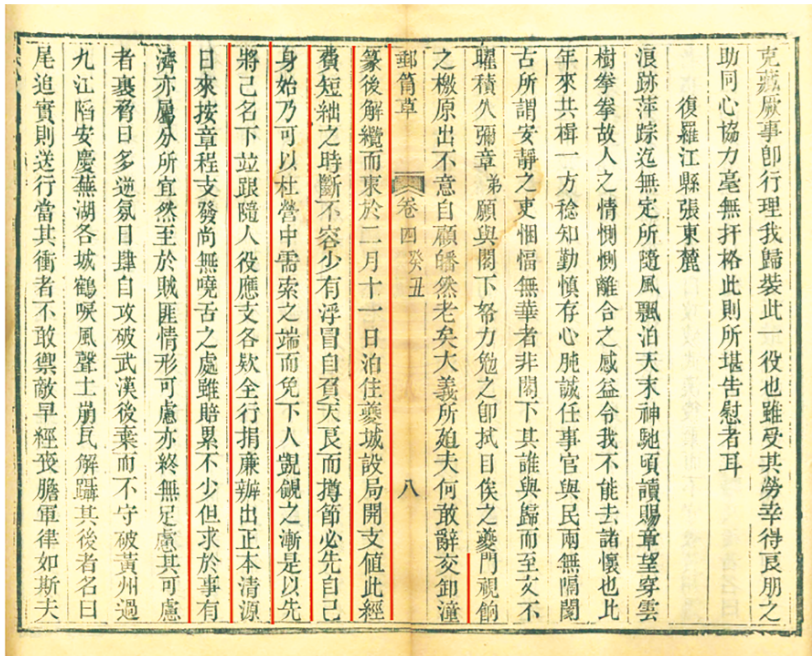 克蕆厥事卽行理我歸裝此一役也雖受其勞幸得良朋之
助同心協力毫無扞格此則所堪吿慰者耳
復羅江縣張東麓
浪跡萍踪迄無定所隨風飄泊天末神馳頃讀賜章望穿雲
樹拳拳故人之情惻惻離合之感益令我不能去諸懷也比
年來共楫一方稔知勤愼存心肫誠任事官與民兩無隔閡
古所謂安靜之吏悃愊無華者非閣下其誰與歸而至文不
曜積久彌章弟願與閣下努力勉之卽拭目俟之夔門視餉
之檄原出不意自顧皤然老矣大義所廹夫何敢辭交卸潼
郵筒草
卷四癸丑
八
篆後解纜而東於二月十一日泊住夔城設局開支值此經
費短絀之時斷不容少有浮冒自負天良而撙節必先自己
身始乃可以杜營中需索之端而免下人覬覦之漸是以先
將己名下竝跟隨人役應支各欵全行捐廉辦出正本淸源
日來按章程支發尙無嘵舌之處雖賠累不少但求於事有
濟亦屬分所宜然至於賊匪情形可慮亦終無足慮其可慮
者裹脅日多逆氛日肆自攻破武漢後棄而不守破黃州過
九江䧟安慶蕪湖各城鶴唳風聲土崩瓦解躡其後者名曰
尾追實則送行當其衝者不敢禦敵早經喪膽軍律如斯夫